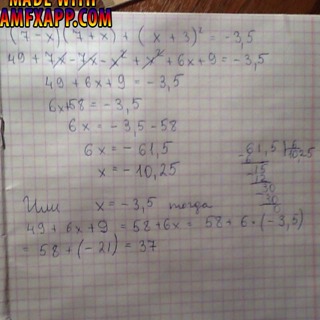 MADE WITH
AMFXAPP.COM!
(7-x)(7+x)+(x+3)² = -3,5
49 + 7x - 7x - x² + x² + 6x + 9 = -3,5
49 + 6x + 9 = -3,5
6x + 58 = -3,5
6x = -3,5 - 58
6x = -61,5
x = -10,25
61,5 | 6
6
10,25
15
12
30
30
0
Или x = -3,5 тогда
49 + 6x + 9 = 58 + 6x = 58 + 6·(-3,5)
= 58 + (-21) = 37